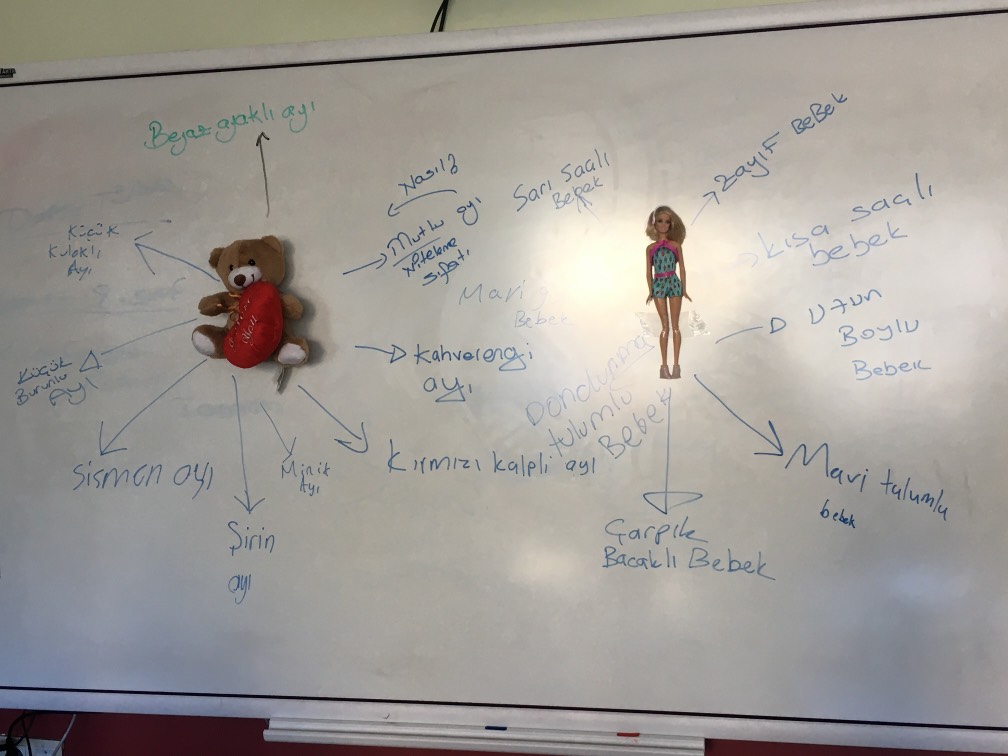 Beyaz ayaklı ayı
Küçük
Kulaklı
Ayı
Küçük
Burunlu
Ayı
sismon ayı
Şirin
ayı
Minik
Ayı
Kırmızı kalpli ayı
kahverengi
ayı
Nasıl?
Mutlu ayı
Niteleme
sıfatı
Sarı Saçlı
Bebek
Zayıf BeBek
kısa saçlı
bebek
Uzun
Boylu
Bebek
Mavi tulumlu
bebek
Çarpık
Bacaklı Bebek
Mavi
Bebek
tulumlu
Bebek